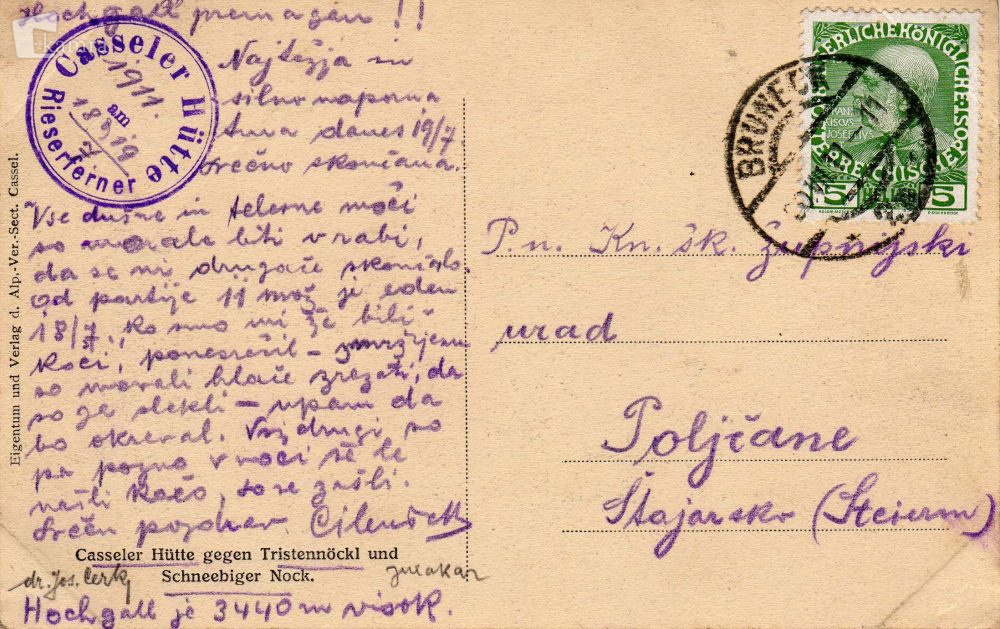 Hochgall premagan !!
Najtežja in
silno naporna
tura danes 19/7
srečno skončana.
Vse dušne in telesne moči
so morale biti v rabi,
da se ni drugače skončalo.
Od partije 11 mož je eden
18/7., ko smo mi že bili v
koči, ponesrečil -
so morali hlače zrezati, da
so ga slekli - upam da
bo okreval. Vsi drugi so
pa pozno v noči še le
našli kočo, so se zašli.
Srčen pozdrav
Casseler Hütte
1911.
am
18 & 19
7
Rieserferner
Eigentum und Verlag d. Alp.-Ver.-Sect. Cassel.
Casseler Hütte gegen Tristennöckl und
Schneebiger Nock.
dr. Jos. Cerk
Hochgall je 3440 m visok.
BRUNECK
5 5
P. n. Kn. šk. župnijski
urad
Poljčane
Štajarsko (Steierm)